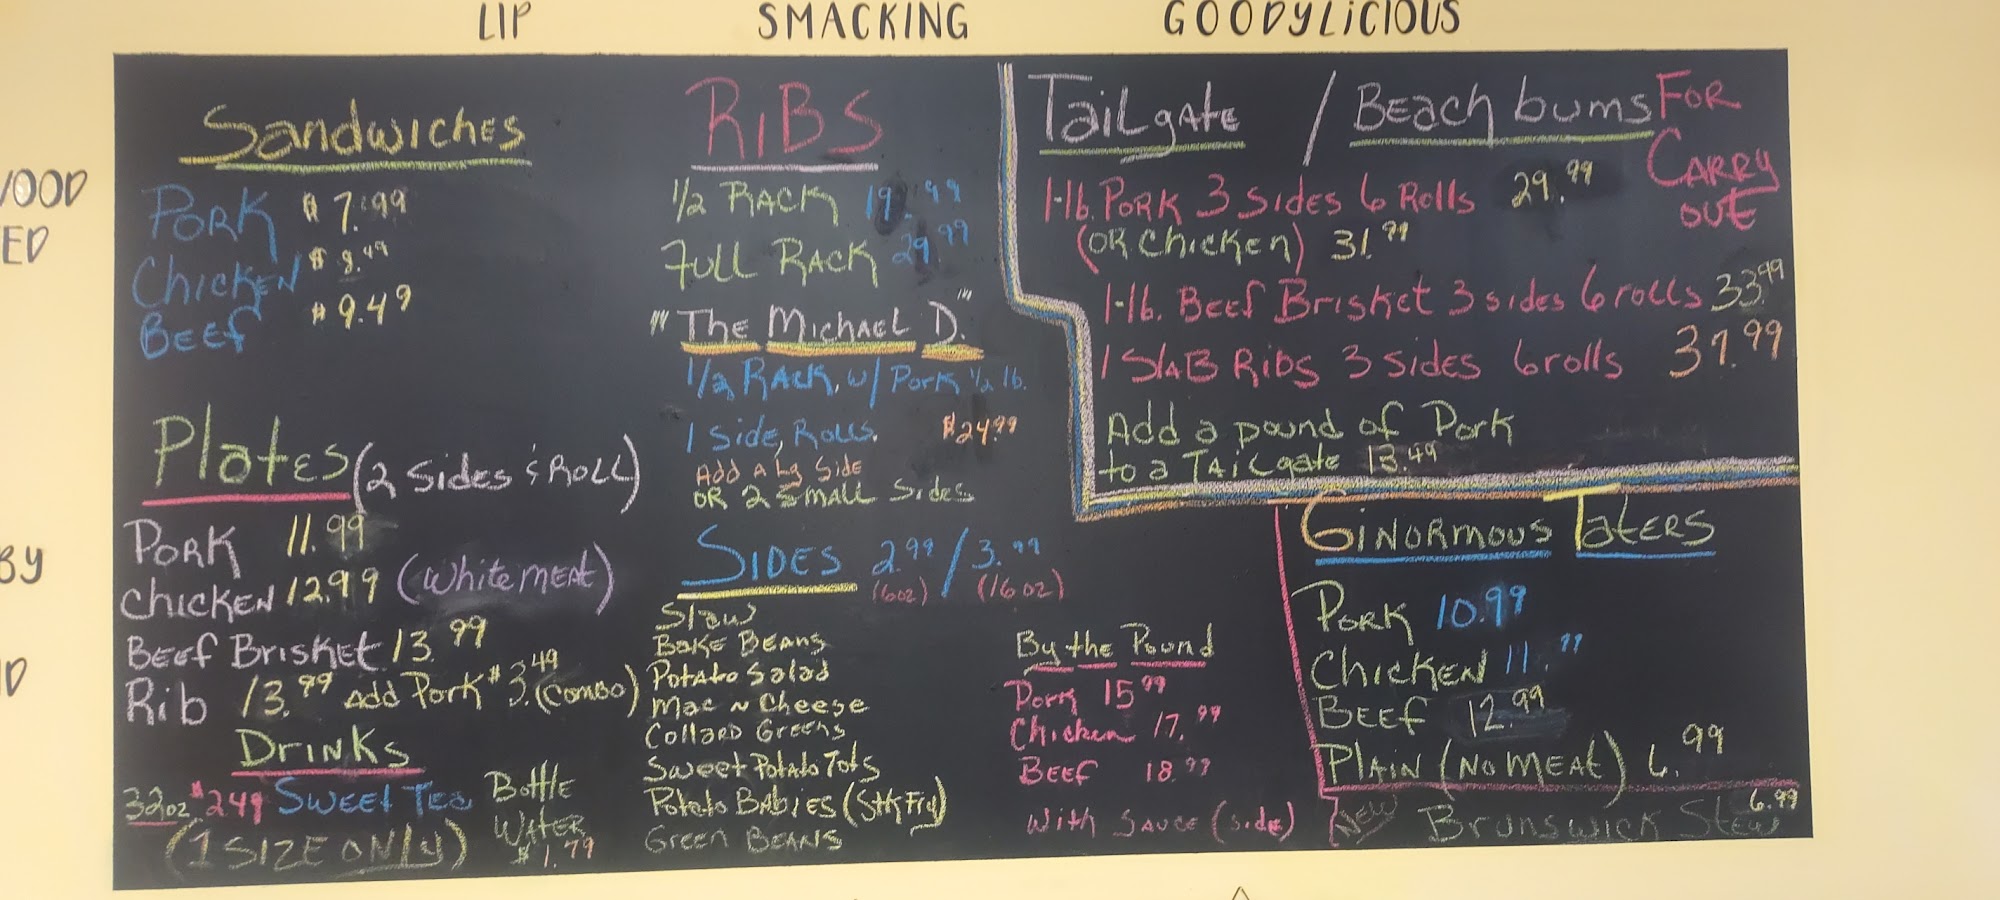 LIP SMACKING GOODYLICIOUS
WOOD
ED
BY
Sandwiches
Pork $7.99
Chicken $8.49
Beef $9.49
Plates (2 Sides & Roll)
Pork 11.99
Chicken 12.99 (White Meat)
Beef Brisket 13.99
Rib 13.99 Add Pork $3.49 (Combo)
Drinks
32oz $2.49 Sweet Tea
(1 Size Only)
Bottle
Water
$1.79
Ribs
1/2 Rack 19.99
Full Rack 29.99
"The Michael D."
1/2 Rack, w/ Pork 1/2 lb.
1 Side, Rolls. $24.99
Add A Lg Side
OR 2 Small Sides
Sides 2.99 / 3.99
(6oz) (16oz)
Slaw
Bake Beans
Potato Salad
Mac n Cheese
Collard Greens
Sweet Potato Tots
Potato Babies (Stk Fry)
Green Beans
Tailgate / Beach bums For
Carry
out
1-lb. Pork 3 Sides 6 Rolls 29.99
(OR Chicken) 31.99
1-lb. Beef Brisket 3 sides 6 rolls 33.99
1 Slab Ribs 3 sides 6 rolls 37.99
Add a pound of Pork
to a Tailgate 13.49
By the Pound
Pork 15.99
Chicken 17.99
Beef 18.99
With Sauce (side)
Ginormous Taters
Pork 10.99
Chicken 11.99
Beef 12.99
Plain (No Meat) 6.99
New Brunswick Stew 6.99